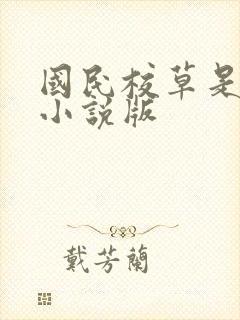 國民校草是
小說版
戴芳蘭